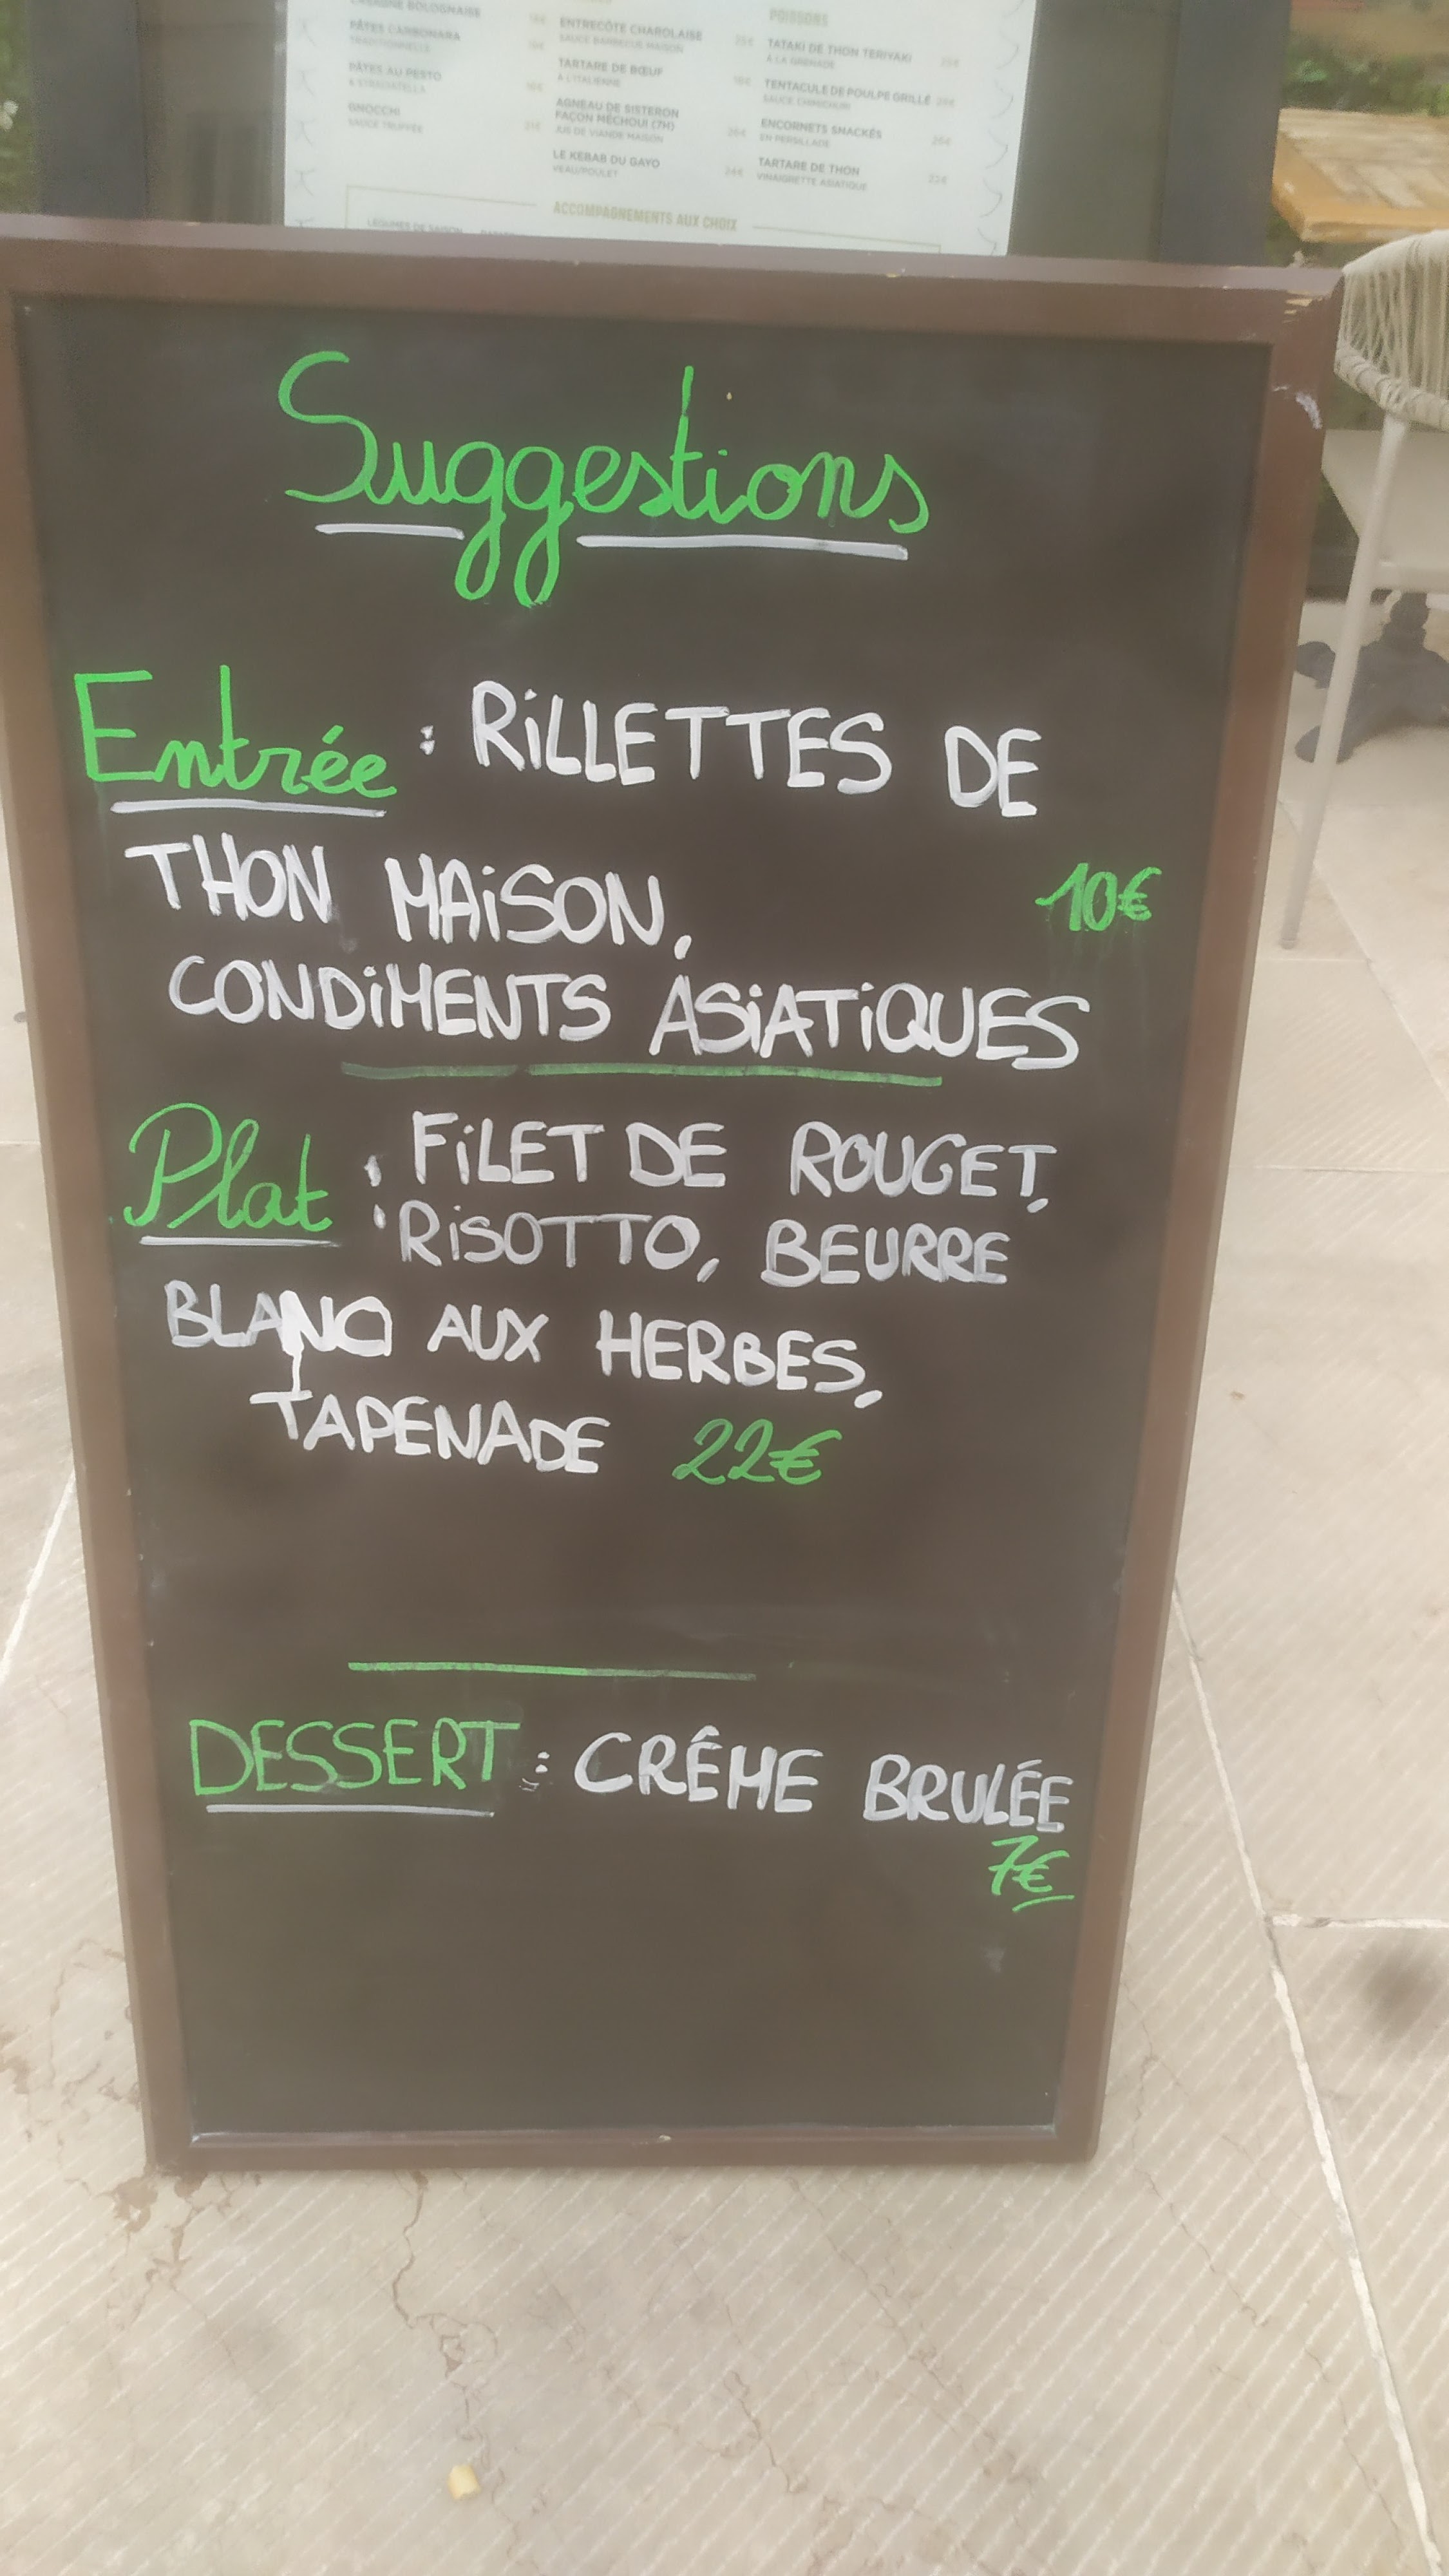 LASAGNE BOLOGNAISE
PÂTES CARBONARA
TRADITIONNELLE
PÂTES AU PESTO
& STRACIATELLA
GNOCCHI
SAUCE TRUFFÉE
ENTRECÔTE CHAROLAISE
SAUCE BARBECUE MAISON
TARTARE DE BŒUF
À L'ITALIENNE
AGNEAU DE SISTERON
FAÇON MÉCHOUI (7H)
JUS DE VIANDE MAISON 26€
LE KEBAB DU GAYO
VEAU/POULET 24€
POISSONS
TATAKI DE THON TERIYAKI
À LA GRENADE
TENTACULE DE POULPE GRILLÉ
SAUCE CHIMICHURI
ENCORNETS SNACKÉS
EN PERSILLADE
TARTARE DE THON
VINAIGRETTE ASIATIQUE 22€
ACCOMPAGNEMENTS AUX CHOIX
LÉGUMES DE SAISON
Suggestions
Entrée : RiLLETTES DE
THON MAiSON, 10€
CONDiMENTS ASiATiQUES
Plat : FiLET DE ROUGET,
RiSOTTO, BEURRE
BLANC AUX HERBES,
TAPENADE 22€
DESSERT : CRÊME BRULÉE
7€